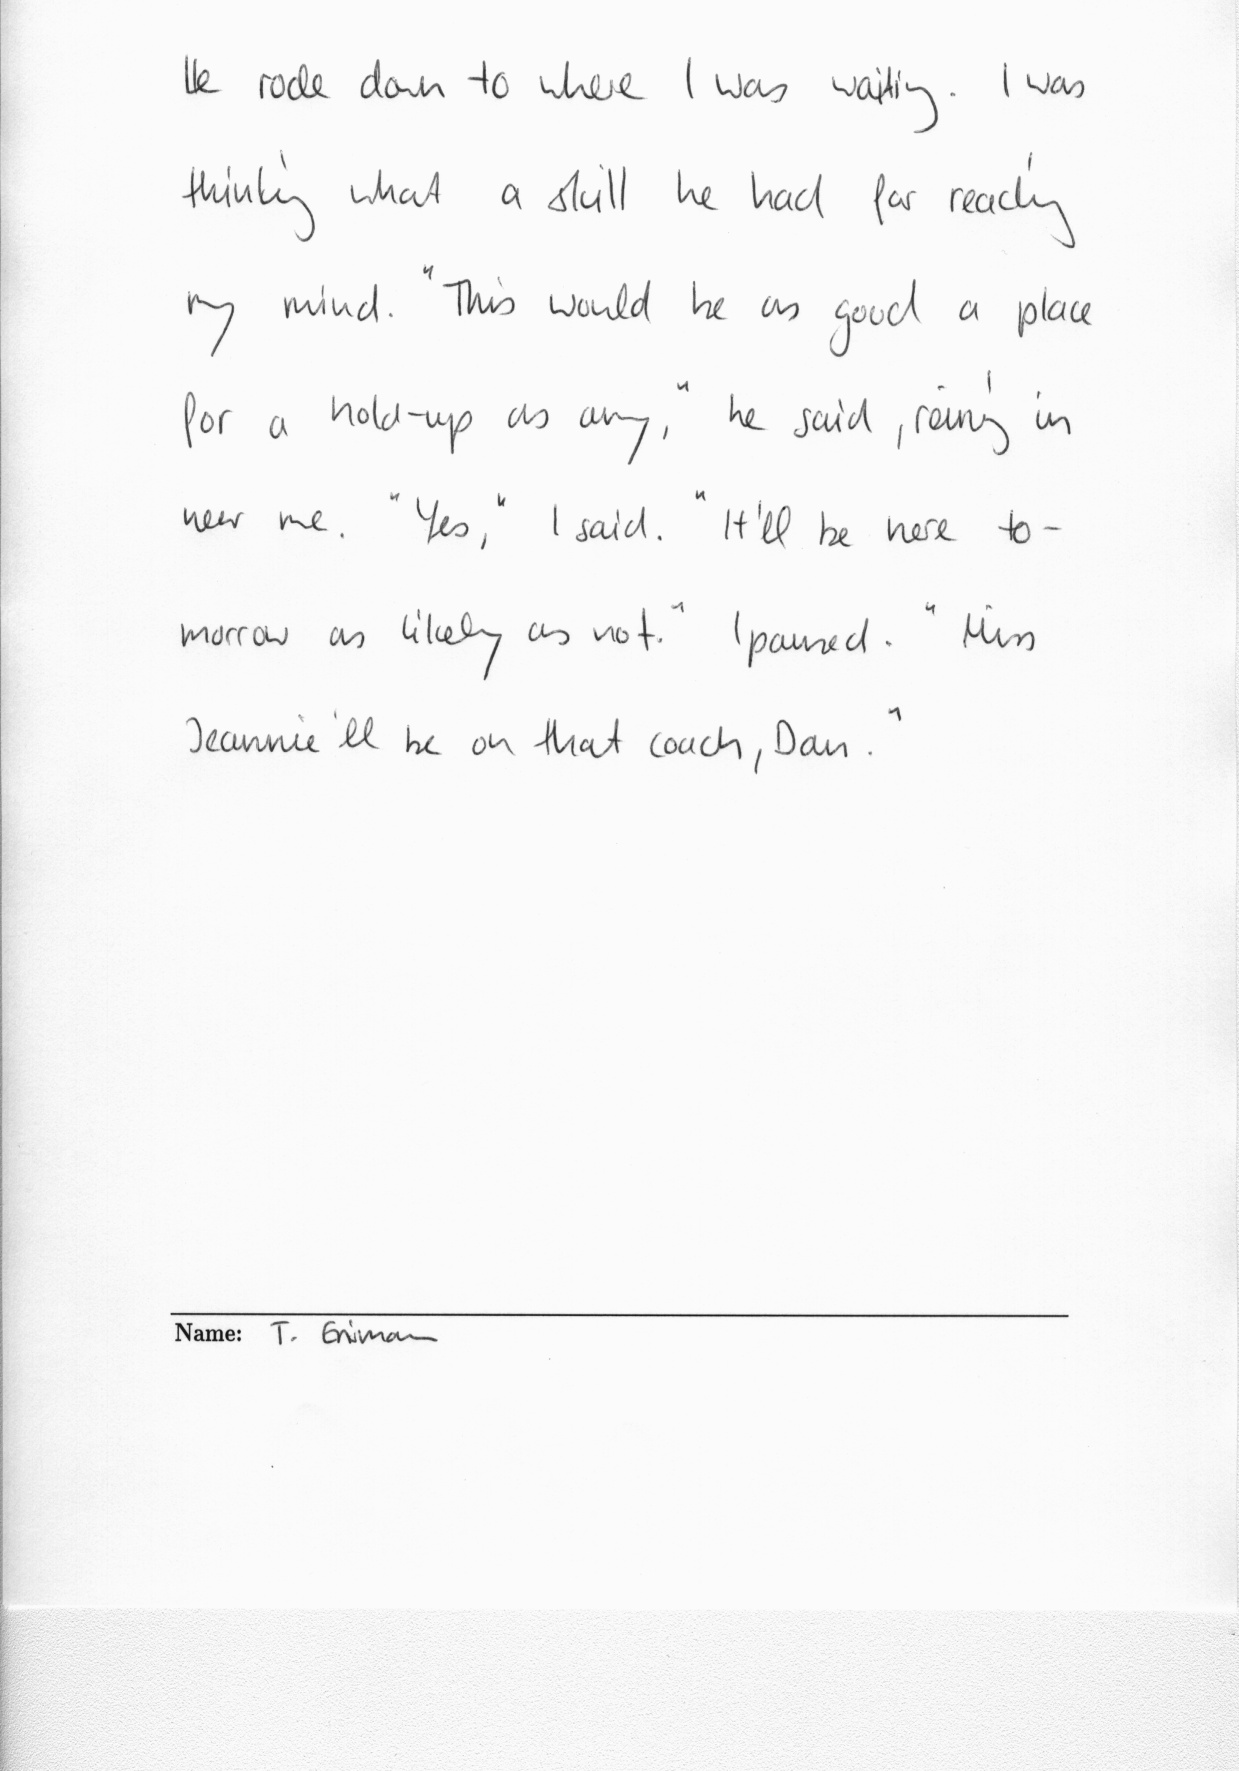 He rode down to where I was waiting. I was
thinking what a skill he had for reading
my mind. "This would be as good a place
for a hold-up as any," he said, reining in
near me. "Yes," I said. "It'll be here to-
morrow as likely as not." I paused. "Miss
Jeannie'll be on that coach, Dan."
Name: T.